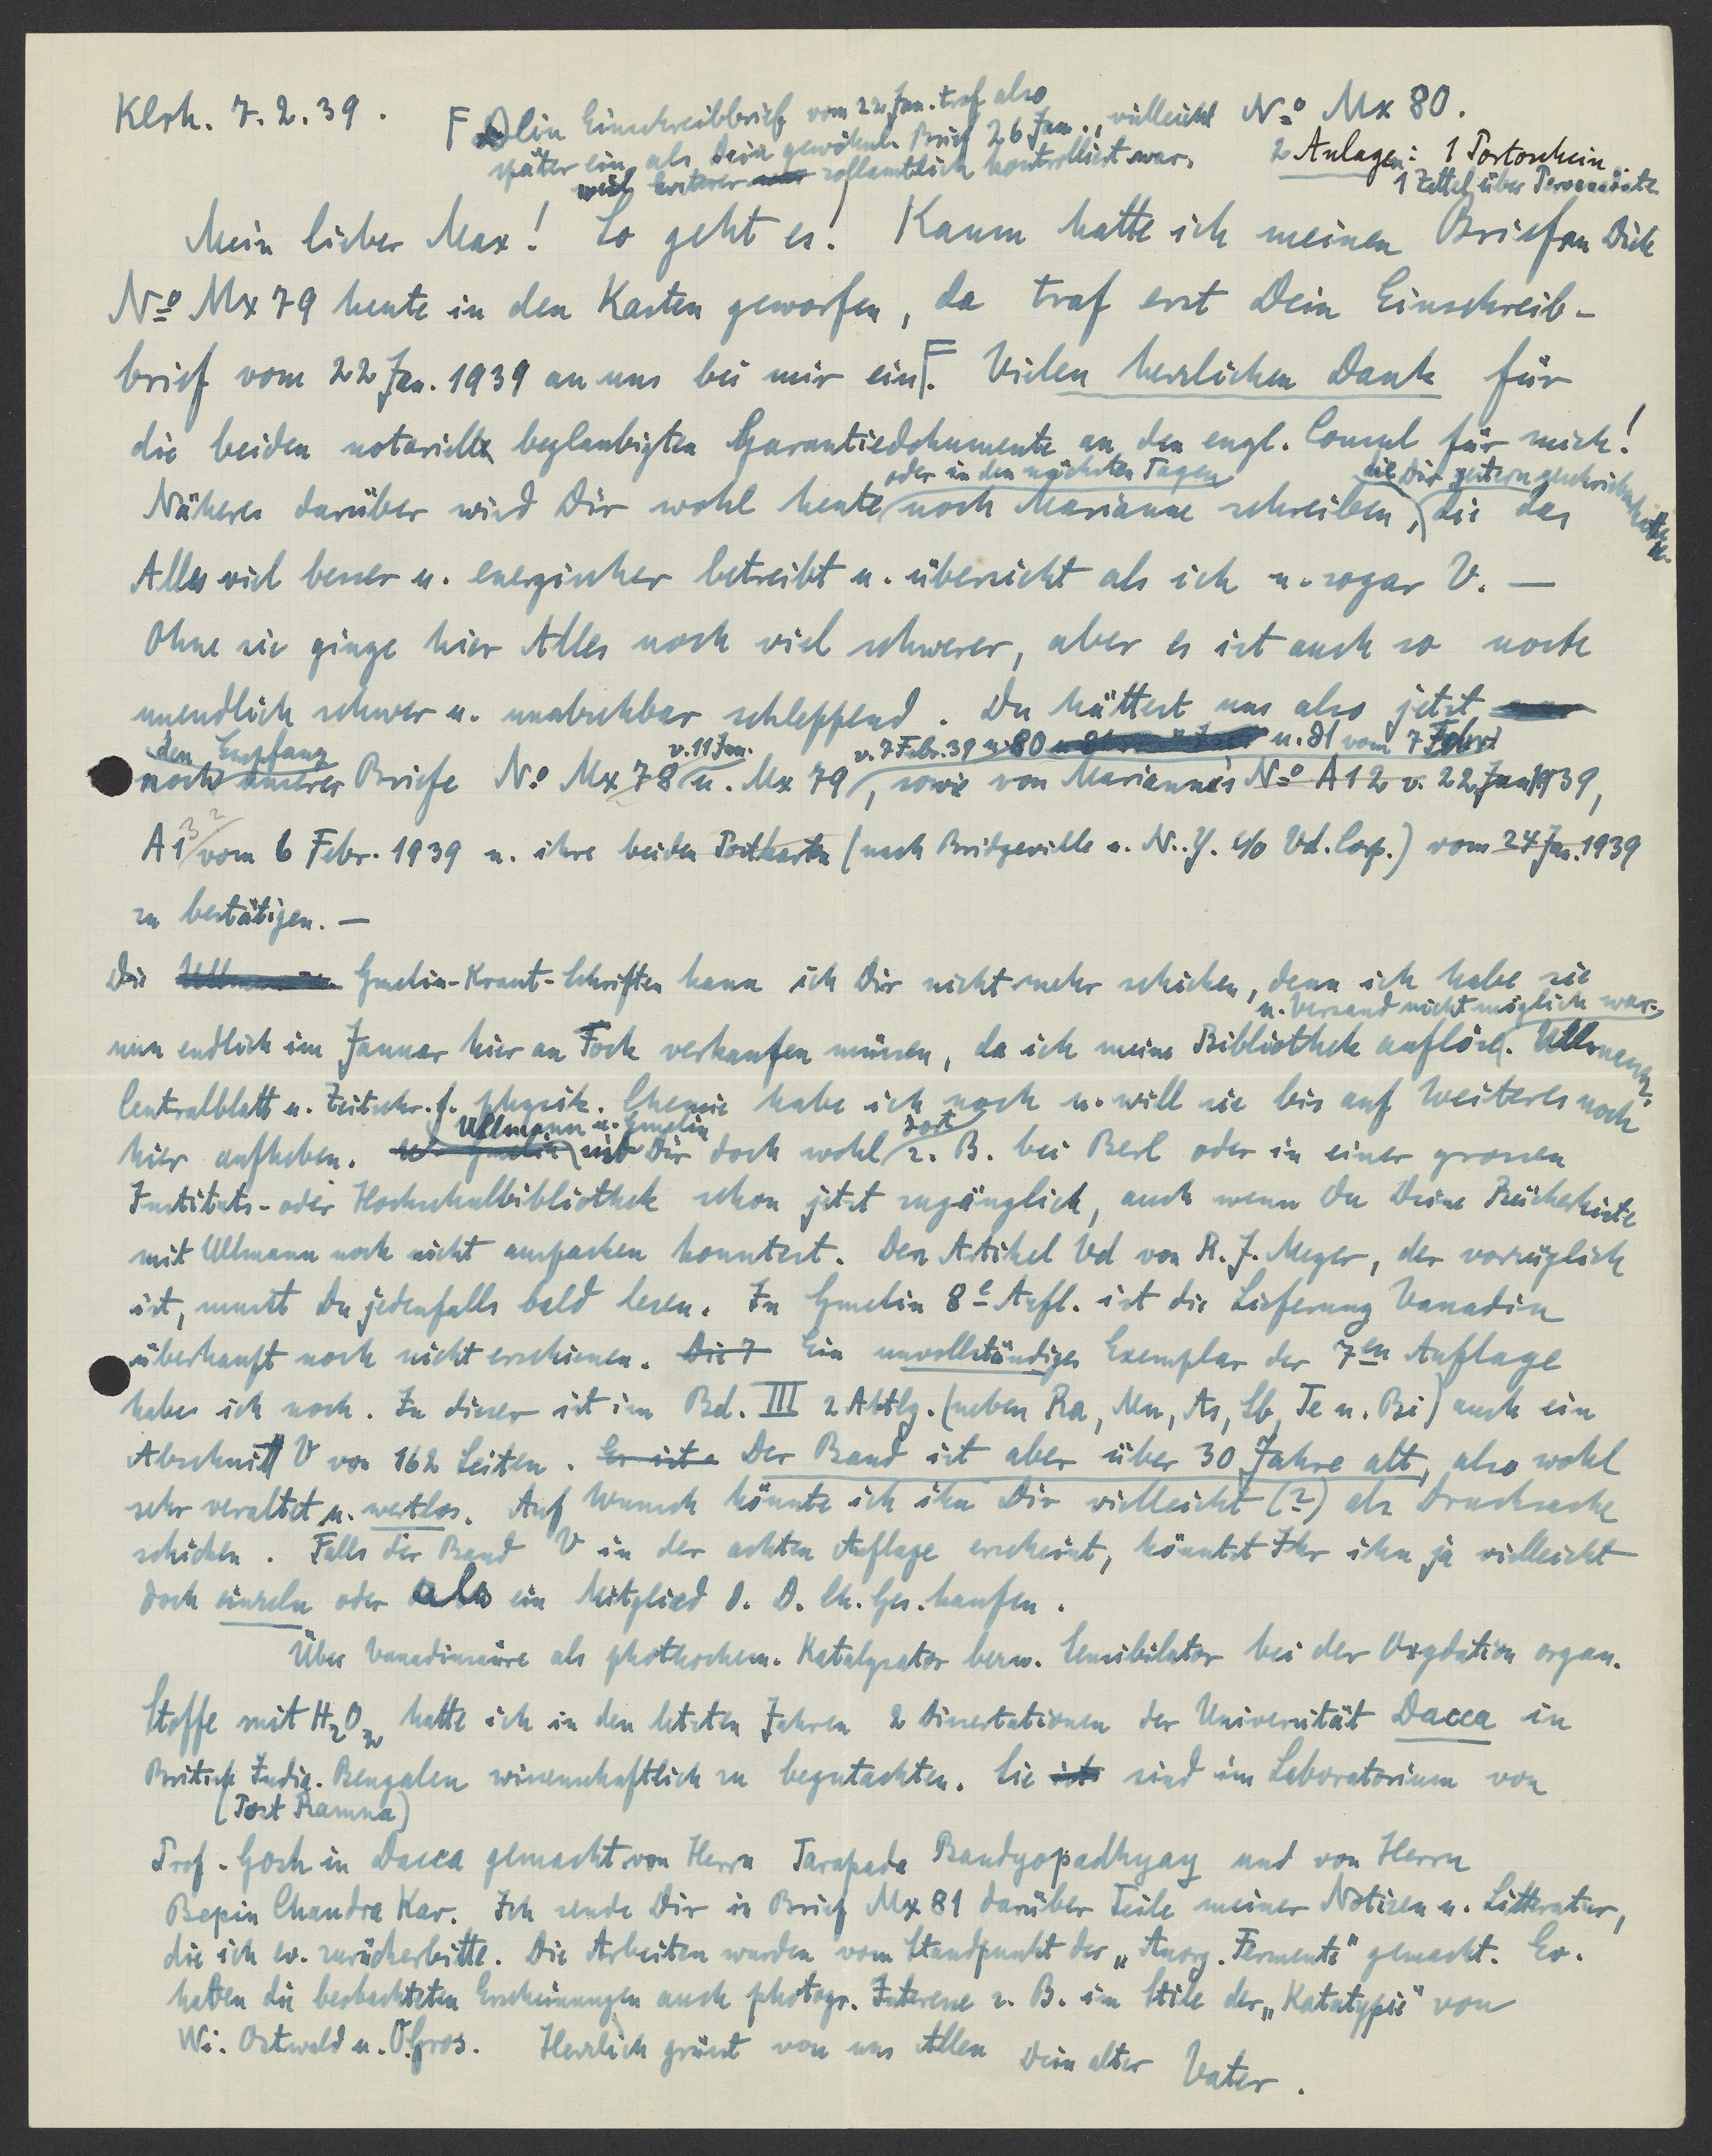 Klrh. 7.2.39.
F Dein Einschreibbrief vom 22 Jan. traf also
später ein, als Dein gewöhnl. Brief 26 Jan., vielleicht
weil ersterer zollamtlich kontrolliert war.
No Mx 80.
2 Anlagen: 1 Portoschein
1 Zettel über
Mein lieber Max! So geht es! Kaum hatte ich meinen Brief an Dich
No Mx 79 heute in den Kasten geworfen, da traf erst Dein Einschreib-
brief vom 22 Jan. 1939 an uns bei mir ein F. Vielen herzlichen Dank für
die beiden notariell beglaubigten Garantiedokumente an den engl. Consul für mich!
oder in den nächsten Tagen
die Dir gestern geschrieben hatte
Näheres darüber wird Dir wohl heute noch Marianne schreiben, die das
Alles viel besser u. energischer betreibt u. übersieht als ich u. sogar V. —
Ohne sie ginge hier Alles noch viel schwerer, aber es ist auch so noch
unendlich schwer u. unabsehbar schleppend. Du hättest uns also jetzt
den Empfang
v. 11 Jan.
v. 7 Febr. 39 u. 80 u. 81 vom 7 Febr.
noch unserer Briefe No Mx 78 u. Mx 79, sowie von Marianne's No A12 v. 22 Jan 1939,
A13 vom 6 Febr. 1939 u. ihre beiden Postkarten (nach Bridgeville u. N.Y. c/o Vd. Corp.) vom 24 Jan. 1939
zu bestätigen. —
Die Gmelin-Kraut-Schriften kann ich Dir nicht mehr schicken, denn ich habe sie
u. Versand nicht möglich war.
nun endlich im Januar hier an Fock verkaufen müssen, da ich meine Bibliothek auflöse. Ullmann,
Centralblatt u. Zeitschr. f. physik. Chemie habe ich noch u. will sie bis auf Weiteres noch
Ullmann u. Gmelin
dort
hier aufheben. sind Dir doch wohl z. B. bei Berl oder in einer grossen
Instituts- oder Hochschulbibliothek schon jetzt zugänglich, auch wenn Du Deine Bücherkiste
mit Ullmann noch nicht auspacken konntest. Den Artikel Vd von R. J. Meyer, der vorzüglich
ist, musst Du jedenfalls bald lesen. In Gmelin 8e Aufl. ist die Lieferung Vanadin
überhaupt noch nicht erschienen. Die 7 Ein unvollständiges Exemplar der 7en Auflage
habe ich noch. In dieser ist im Bd. III 2 Abtlg. (neben Ra, Mn, As, Sb, Te u. Bi) auch ein
Abschnitt V von 162 Seiten. Er ist Der Band ist aber über 30 Jahre alt, also wohl
sehr veraltet u. wertlos. Auf Wunsch könnte ich ihn Dir vielleicht (?) als Drucksache
schicken. Falls der Band V in der achten Auflage erscheint, könntet Ihr ihn ja vielleicht
doch einzeln oder als ein Mitglied d. D. Ch. Ges. kaufen.
Über Vanadinsäure als photochem. Katalysator bezw. Sensibilator bei der Oxydation organ.
Stoffe mit H2O2 hatte ich in den letzten Jahren 2 Dissertationen der Universität Dacca in
Britisch India. Bengalen wissenschaftlich zu begutachten. Sie ist sind im Laboratorium von
(Post Ramna)
Prof. Gosh in Dacca gemacht von Herrn Tarapada Bandyopadhyay und von Herrn
Bepin Chandra Kar. Ich sende Dir in Brief Mx 81 darüber Teile meiner Notizen u. Litteratur,
die ich ev. zurückerbitte. Die Arbeiten wurden vom Standpunkt der „Anorg. Fermente" gemacht. Ev.
haben die beobachteten Erscheinungen auch photogr. Interesse z. B. im Stile der „Katatypie" von
Wi. Ostwald u. O. Gros. Herzlich grüsst von uns Allen Dein alter Vater.